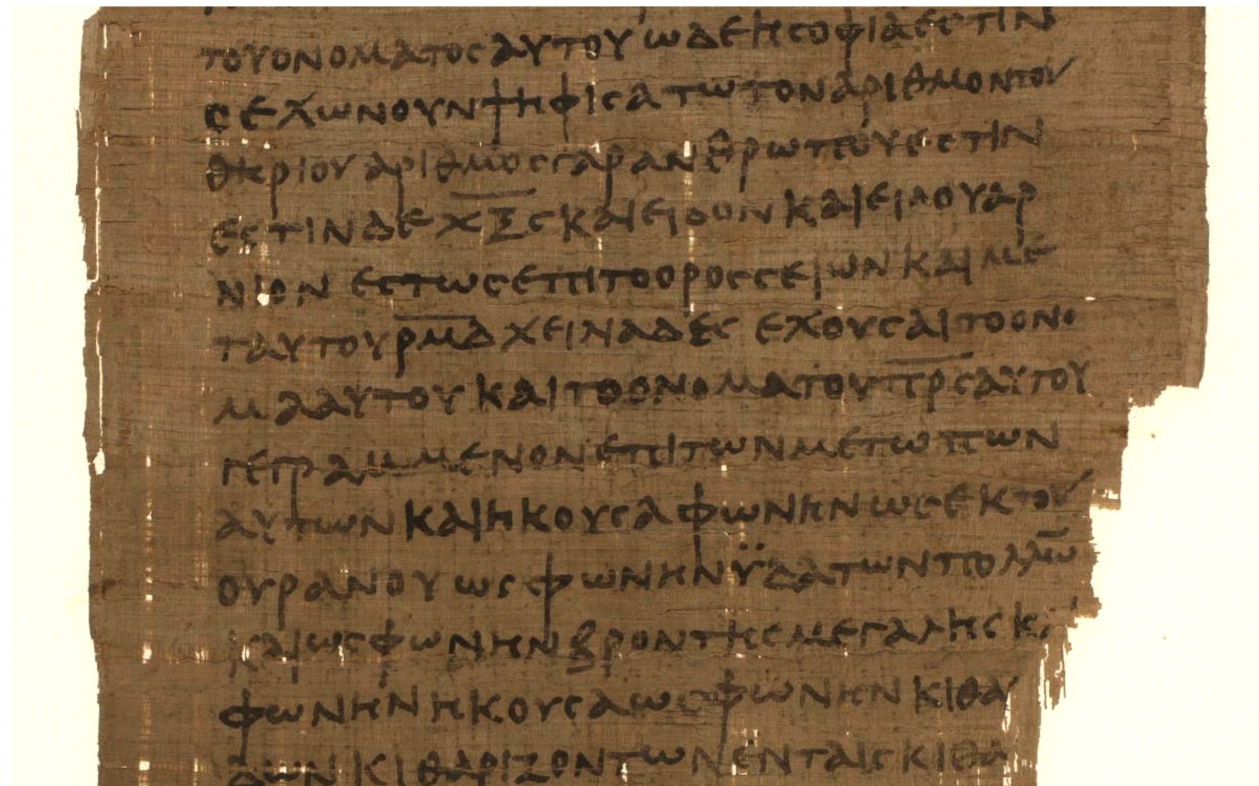 ΤΟΥΟΝΟΜΑΤΟСΑΥΤΟΥωΔΕΗСΟΦΙΑΕСΤΙΝ
ΟΕΧωΝΟΥΝΨΗΦΙСΑΤωΤΟΝΑΡΙΘΜΟΝΤΟΥ
ΘΗΡΙΟΥΑΡΙΘΜΟСΓΑΡΑΝΘΡωΠΟΥΕСΤΙΝ
ΕСΤΙΝΔΕΧ̅Ξ̅Ϛ̅ΚΑΙΕΙΔΟΝΚΑΙΕΙΔΟΥΑΡ
ΝΙΟΝ ΕСΤωСΕΠΙΤΟΟΡΟССΕΙωΝΚΑΙΜΕ
ΤΑΥΤΟΥΡ̅Μ̅Δ̅ΧΕΙΝΑΔΕС ΕΧΟΥСΑΙΤΟΟΝΟ
ΜΑΑΥΤΟΥΚΑΙΤΟΟΝΟΜΑΤΟΥΠ̅Ρ̅С̅ΑΥΤΟΥ
ΓΕΓΡΑΜΜΕΝΟΝΕΠΙΤωΝΜΕΤωΠωΝ
ΑΥΤωΝΚΑΙΗΚΟΥСΑΦωΝΗΝωСΕΚΤΟΥ
ΟΥΡΑΝΟΥωСΦωΝΗΝΫΔΑΤωΝΠΟΛΛω̅
ΚΑΙωСΦωΝΗΝΒΡΟΝΤΗСΜΕΓΑΛΗСΚ
ΦωΝΗΝΗΚΟΥСΑωСΦωΝΗΝΚΙΘΑ
ΔωΝΚΙΘΑΡΙΖΟΝΤωΝΕΝΤΑΙСΚΙΘΑ